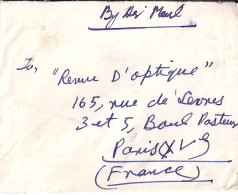 By Air Mail
To, "Revue D'optique"
165, rue de Sevres
3 et 5, Boul Pasteur
Paris XVe
(France)